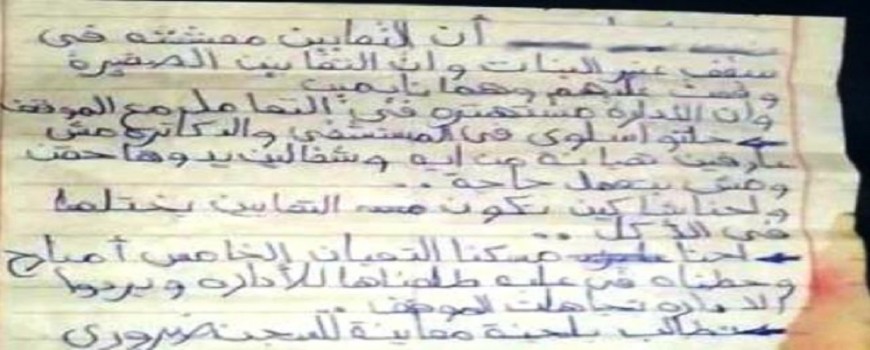 أن لثعابين معششه فى
سقف عنبر البنات وان الثعابين الصغيرة
وقعت عليهم وهما نايمين
وأن الادارة مستهتره في التعامل مع الموقف
حالتو اسلوى فى المستشفى والدكاتره مش
عارفين عيانة من ايه وشغالين يدوها حقن
ومش بتعمل حاجة ..
واحنا شاكين يكون سم الثعابين يختلط
فى الأكل ..
احنا مسكنا التعبان الخامس أمبارح
وحطناه فى علبه طلعناها للأداره وبردوا
الاداره تجاهلت الموقف ..
نطالب بلجنة معاينة للسجن ضرورى